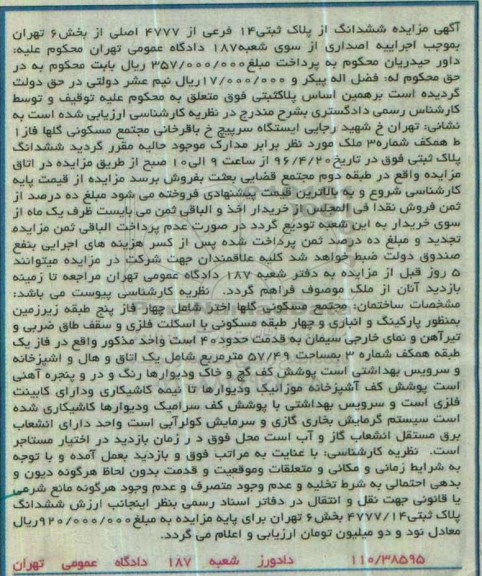 آگهی مزایده ششدانگ از پلاک ثبتی۱۴ فرعی از ۴۷۷۷ اصلی از بخش۶ تهران
بموجب اجراییه اصداری از سوی شعبه۱۸۷ دادگاه عمومی تهران محکوم علیه:
داور حیدریان محکوم به پرداخت مبلغ۳۵۷/۰۰۰/۰۰۰ ریال بابت محکوم به در
حق محکوم له: فضل اله پیکر و ۱۷/۰۰۰/۰۰۰ریال نیم عشر دولتی در حق دولت
گردیده است برهمین اساس پلاکثبتی فوق متعلق به محکوم علیه توقیف و توسط
کارشناس رسمی دادگستری بشرح مندرج در نظریه کارشناسی ارزیابی شده است به
نشانی: تهران خ شهید رجایی ایستگاه سرپیچ خ باقرخانی مجتمع مسکونی گلها فاز۱
ط همکف شماره۳ ملک مورد نظر برابر مدارک موجود حالیه مقرر گردید ششدانگ
پلاک ثبتی فوق در تاریخ۹۶/۴/۲۰ از ساعت ۹ الی۱۰ صبح از طریق مزایده در اتاق
مزایده واقع در طبقه دوم مجتمع قضایی بعثت بفروش برسد مزایده از قیمت پایه
کارشناسی شروع و به بالاترین قیمت پیشنهادی فروخته می شود مبلغ ده درصد از
ثمن فروش نقدا فی المجلس از خریدار اخذ و الباقی ثمن می بایست ظرف یک ماه از
سوی خریدار به این شعبه تودیع گردد در صورت عدم پرداخت الباقی ثمن مزایده
تجدید و مبلغ ده درصد ثمن پرداخت شده پس از کسر هزینه های اجرایی بنفع
صندوق دولت ضبط خواهد شد کلیه علاقمندان جهت شرکت در مزایده میتوانند
۵ روز قبل از مزایده به دفتر شعبه ۱۸۷ دادگاه عمومی تهران مراجعه تا زمینه
بازدید آنان از ملک موصوف فراهم گردد. نظریه کارشناسی پیوست می باشد:
مشخصات ساختمان: مجتمع مسکونی گلها اختر شامل چهار فاز پنج طبقه زیرزمین
بمنظور پارکینگ و انباری و چهار طبقه مسکونی با اسکلت فلزی و سقف طاق ضربی و
تیرآهن و نمای خارجی سیمان به قدمت حدود۴۰ است واحد مذکور واقع در فاز یک
طبقه همکف شماره ۳ بمساحت ۵۷/۴۹ مترمربع شامل یک اتاق و هال و اشپزخانه
و سرویس بهداشتی است پوشش کف گچ و خاک ودیوارها رنگ و در و پنجره آهنی
است پوشش کف آشپزخانه موزائیک ودیوارها تا نیمه کاشیکاری ودارای کابینت
فلزی است و سرویس بهداشتی با پوشش کف سرامیک ودیوارها کاشیکاری شده
است سیستم گرمایش بخاری گازی و سرمایش کولرآبی است واحد دارای انشعاب
برق مستقل انشعاب گاز و آب است محل فوق در زمان بازدید در اختیار مستاجر
است. نظریه کارشناسی: با عنایت به مراتب فوق و بازدید بعمل آمده و با توجه
به شرایط زمانی و مکانی و متعلقات وموقعیت و قدمت بدون لحاظ هرگونه دیون و
بدهی احتمالی به شرط تخلیه و عدم وجود متصرف و عدم وجود هرگونه مانع شرعی
یا قانونی جهت نقل و انتقال در دفاتر اسناد رسمی بنظر اینجانب ارزش ششدانگ
پلاک ثبتی۴۷۷۷/۱۴ بخش۶ تهران برای پایه مزایده به مبلغ۹۲۰/۰۰۰/۰۰۰ریال
معادل نود و دو میلیون تومان ارزیابی و اعلام می گردد.
۱۱۰/۳۸۵۹۵ دادورز شعبه ۱۸۷ دادگاه عمومی تهران